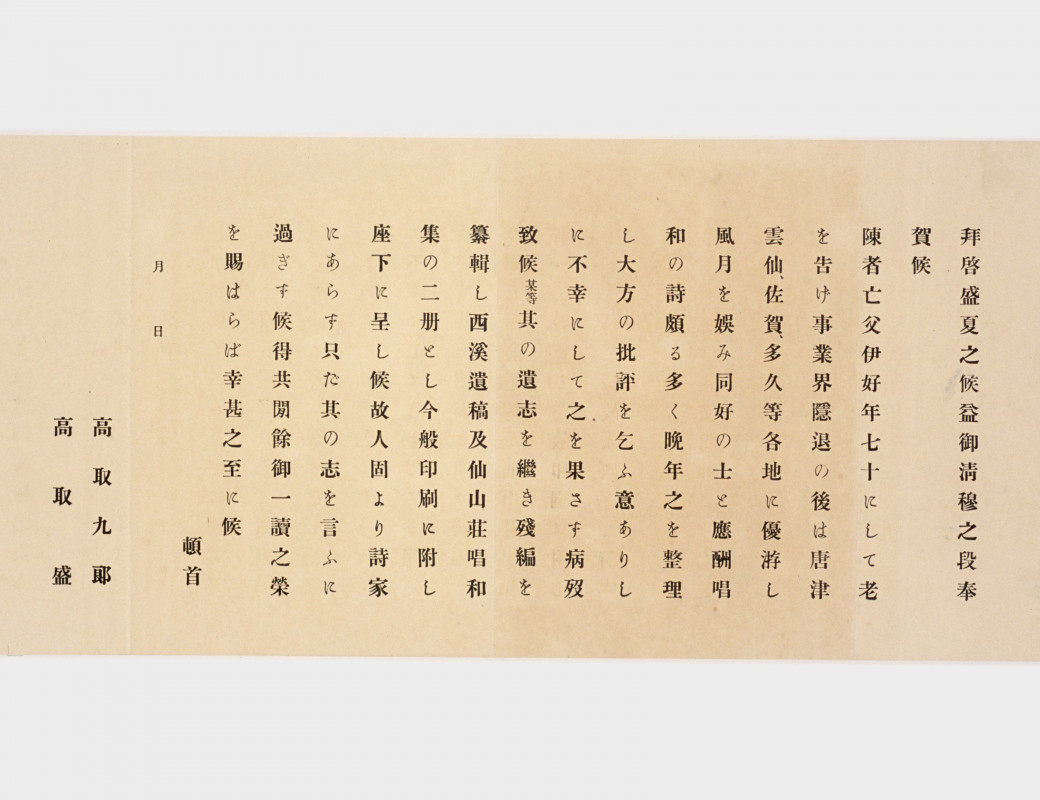 拜啓盛夏之候益御淸穆之段奉
賀候
陳者亡父伊好年七十にして老
を告げ事業界隱退の後は唐津
雲仙、佐賀、多久等各地に優游し
風月を娛み同好の士と應酬唱
和の詩頗る多く晩年之を整理
し大方の批評を乞ふ意ありし
に不幸にして之を果さず病歿
致候某等其の遺志を繼き殘編を
纂輯し西溪遺稿及仙山莊唱和
集の二册とし今般印刷に附し
座下に呈し候故人固より詩家
にあらす只だ其の志を言ふに
過ぎす候得共閒餘御一讀之榮
を賜はらば幸甚之至に候
頓首
月日
高取九郞
高取盛